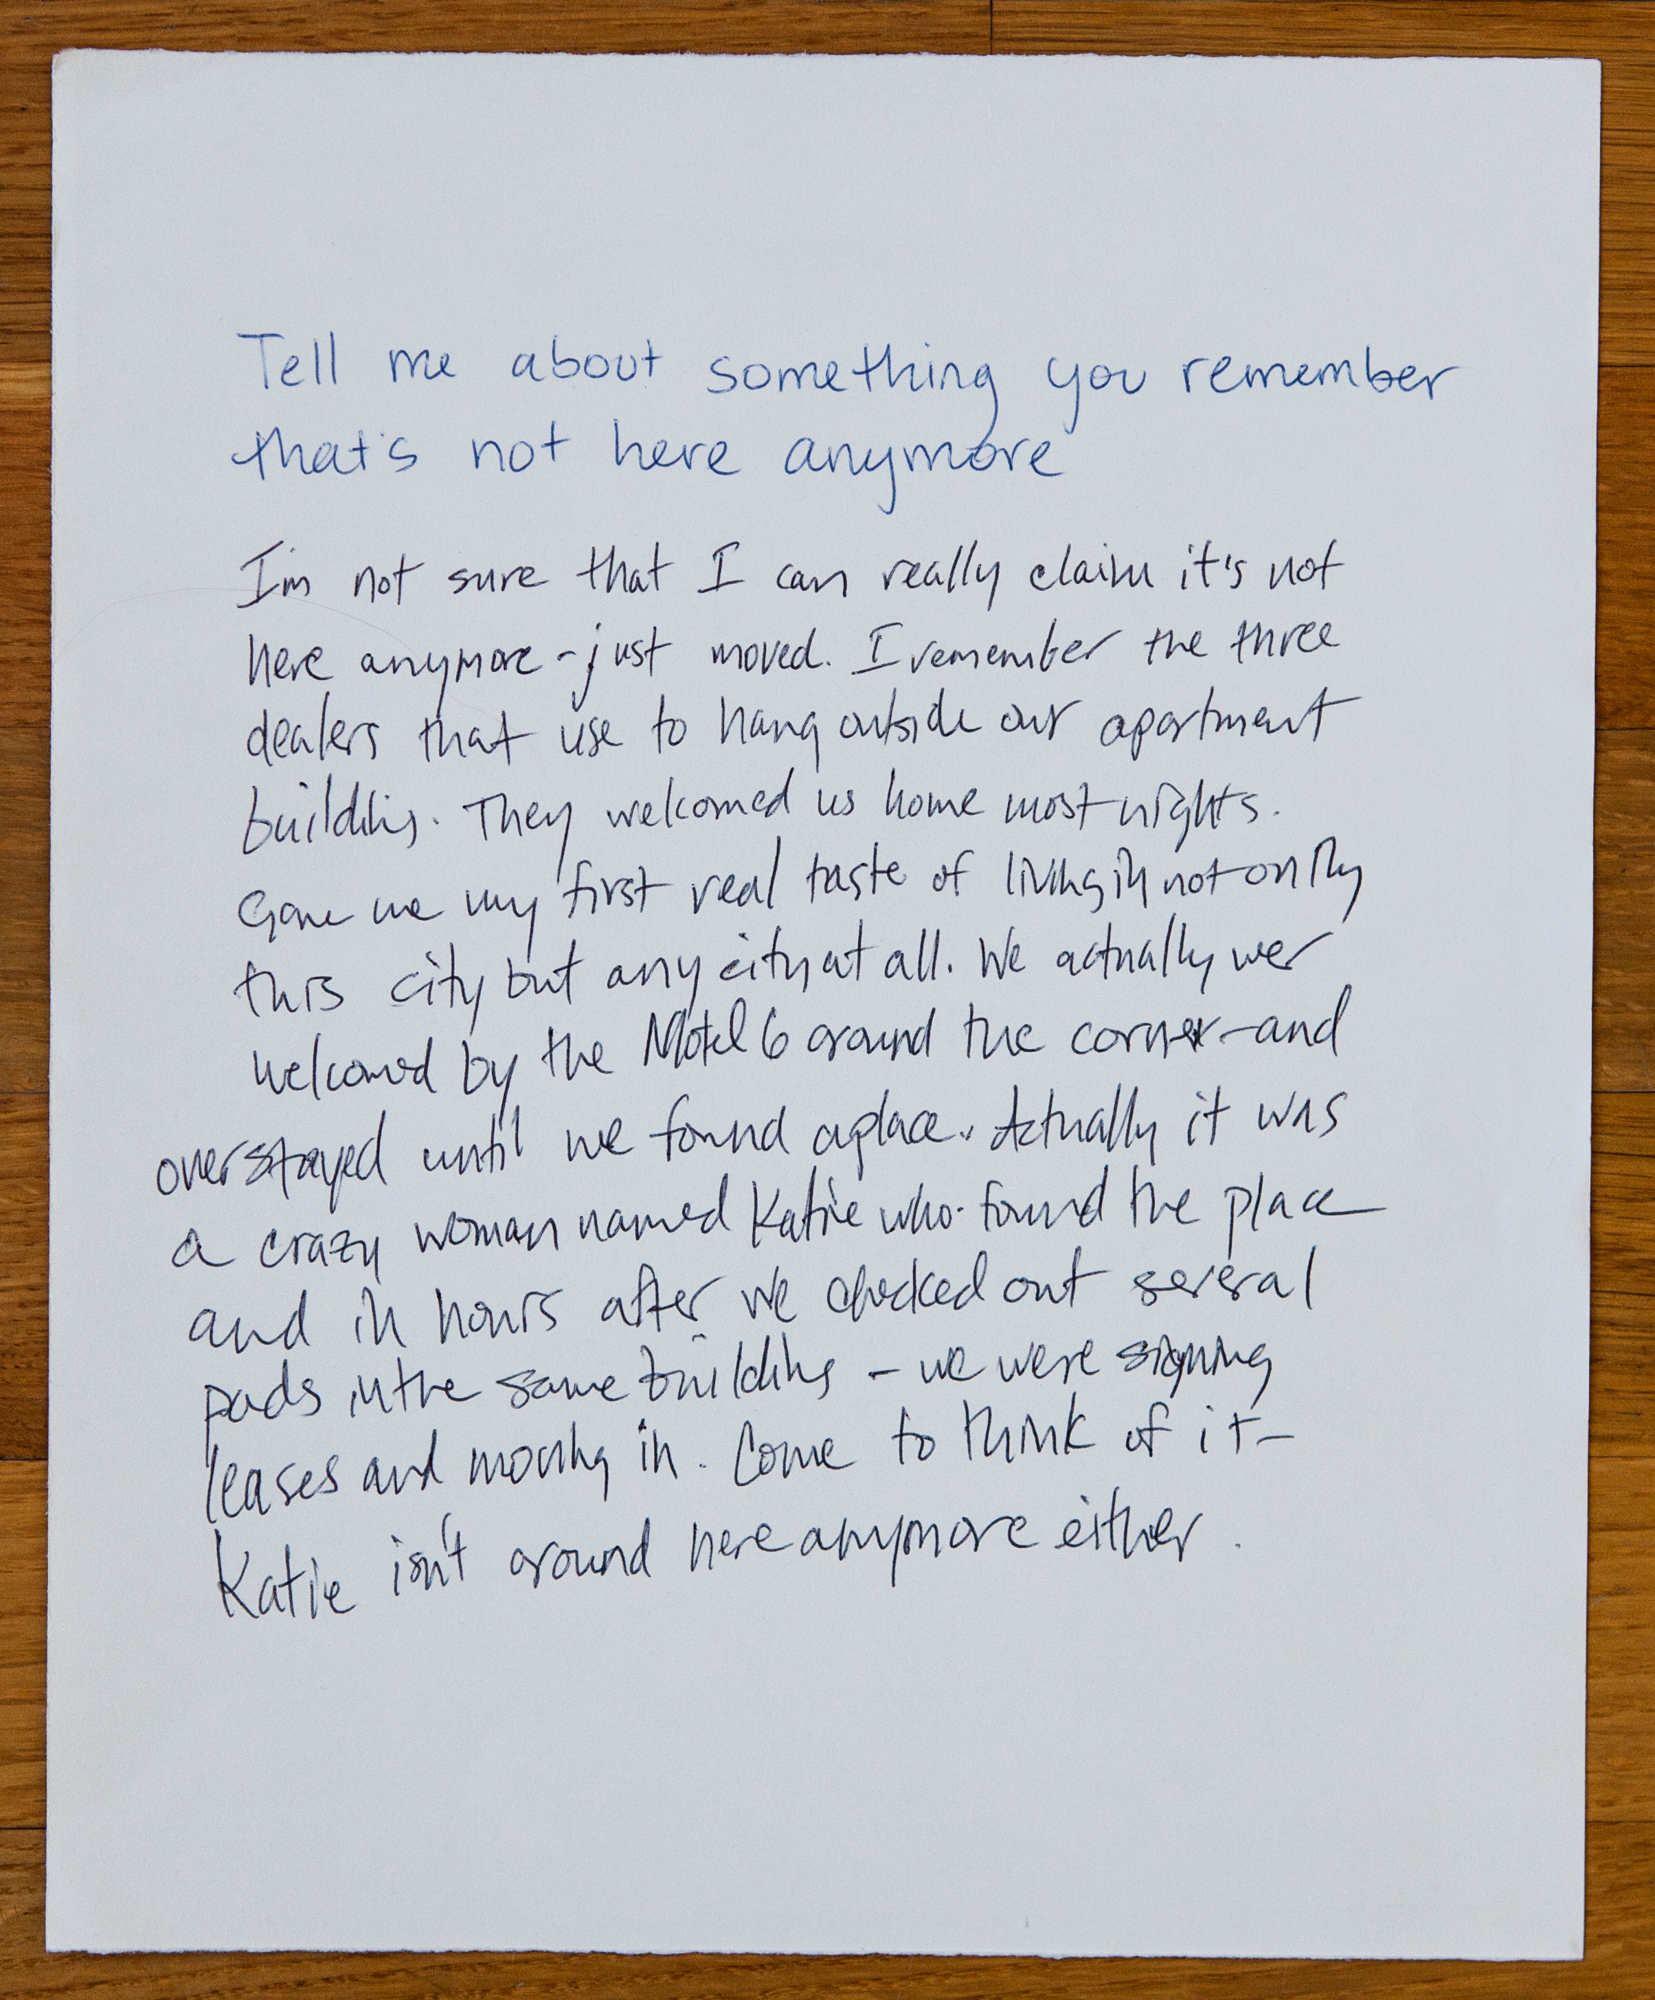 Tell me about something you remember
that's not here anymore
I'm not sure that I can really claim it's not
here anymore - just moved. I remember the three
dealers that use to hang outside our apartment
building. They welcomed us home most nights.
Gave me my first real taste of living in not only
this city but any city at all. We actually wer
welcomed by the Motel 6 around the corner - and
overstayed until we found a place. Actually it was
a crazy woman named Katie who found the place
and in hours after we checked out several
pads in the same building - we were signing
leases and moving in. Come to think of it -
Katie isn't around here anymore either.